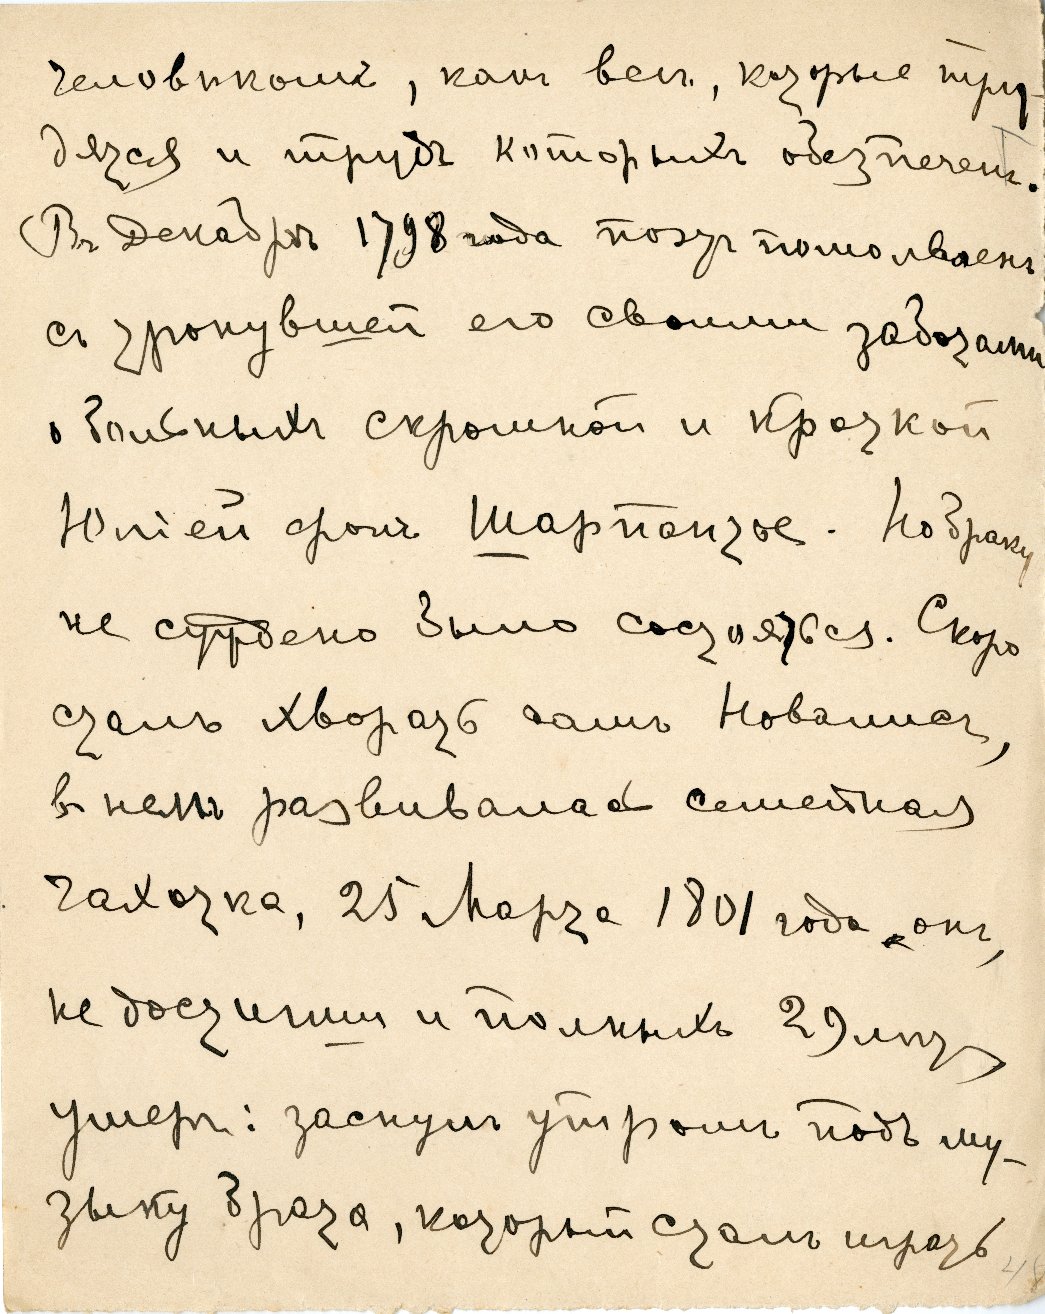 человѣкомъ, какъ всѣ, которые тру-
дятся и трудъ которыхъ обезпеченъ.
(Въ Декабрѣ 1798 года поэтъ помолвленъ
съ тронувшей его своими заботами
о больныхъ скромной и кроткой
Юліей фонъ Шарпантье. Но браку
не суждено было состояться. Скоро
сталъ хворать самъ Новалисъ,
въ немъ развивалась семейная
чахотка, 25 Марта 1801 года онъ,
не достигши и полныхъ 29 лѣтъ,
умеръ: заснулъ утромъ подъ му-
зыку брата, который сталъ играть
48